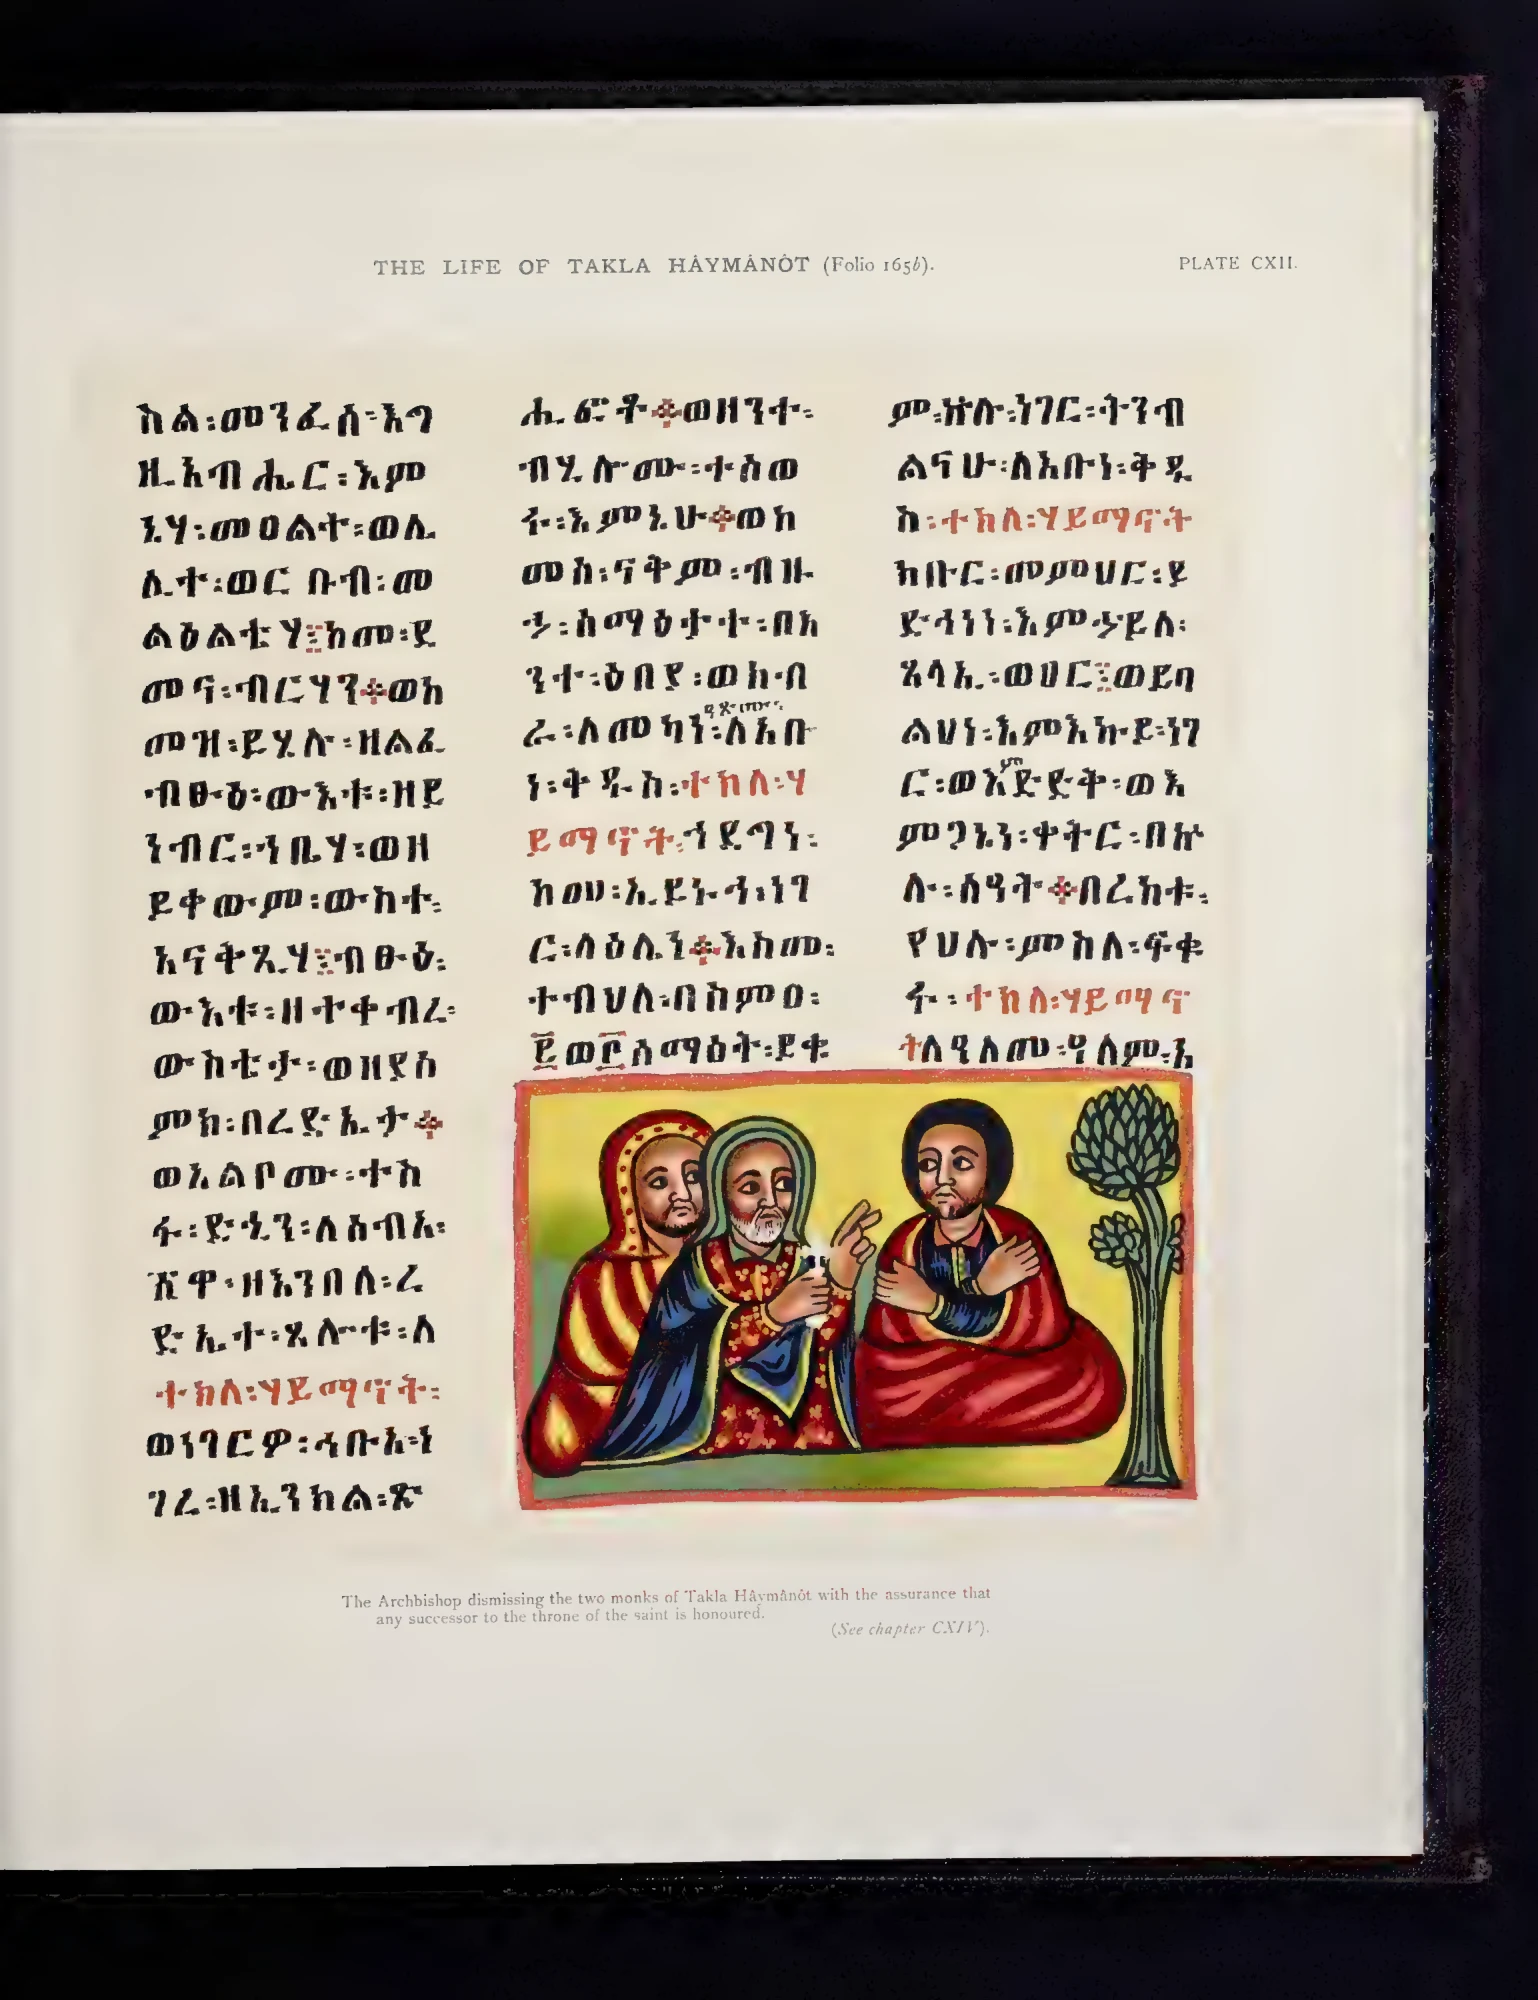 THE LIFE OF TAKLA HÂYMÂNÔT (Folio 165b).
PLATE CXII.
ስል፡መንፈሰ፡እግ
ዚአብሔር፡እም
ኔሃ፡መዐልተ፡ወሌ
ሊተ፡ወርቡብ፡መ
ልዕልቴሃ፨ከመ፡ደ
መና፡ብርሃን፨ወከ
መዝ፡ይሄሉ፡ዘልፈ
ብፁዕ፡ውእቱ፡ዘይ
ነብር፡ኀቤሃ፡ወዘ
ይቀውም፡ውስተ፡
አናቅጺሃ፨ብፁዕ፡
ውእቱ፡ዘተቀብረ፡
ውስቴታ፡ወዘያስ
ምክ፡በረድኤታ፨
ወአልቦሙ፡ተስ
ፋ፡ድኂን፡ለሰብአ፡
ሸዋ፡ዘእንበለ፡ረ
ድኤተ፡ጸሎቱ፡ለ
ተክለ፡ሃይማኖት፡
ወነገርዎ፡ሓቡአ፡ነ
ገረ፡ዘኢንክል፡ጽ
ሒፎቶ፨ወዘንተ፡
ብሂሎሙ፡ተሰወ
ሩ፡እምኔሁ፨ወከ
መሰ፡ናቅም፡ብዙ
ኃ፡ስማዕታተ፡በእ
ንተ፡ዕበያ፡ወክብ
ራ፡ለመካን፡ለአቡ
ነ፡ቅዱስ፡ተክለ፡ሃ
ይማኖት፡ኀደግነ፡
ከመ፡ኢይኑኅ፡ነገ
ር፡ላዕሌን፨እስመ፡
ተብህለ፡በስምዐ፡
፪ወ፫ሰማዕት፡ይቁ
ም፡ኵሉ፡ነገር፡ትንብ
ልናሁ፡ለአቡነ፡ቅዱ
ስ፡ተክለ፡ሃይማኖት
ክቡር፡መምህር፡ይ
ድኅነነ፡እምኃይለ፡
ጸላኢ፡ወፀር፨ወይባ
ልሀነ፡እምእኩይ፡ነገ
ር፡ወእምድድቅ፡ወእ
ምጋኔን፡ቀትር፡በኵ
ሉ፡ሰዓት፨በረከቱ፡
የሀሉ፡ምስለ፡ፍቁ
ሩ፡ተክለ፡ሃይማኖ
ትለዓለመ፡ዓለም፡አ
The Archbishop dismissing the two monks of Takla Hâymânôt with the assurance that
any successor to the throne of the saint is honoured.
(See chapter CXIV).